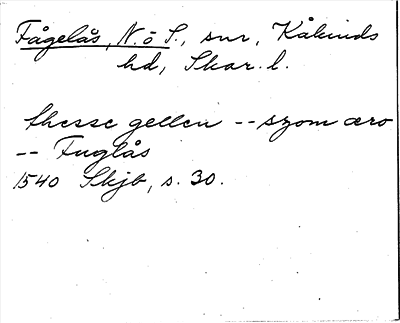 Fågelås, N. ö S., snr, Kåkinds
hd, Skar. l.
thesse gellen -- szom æro
-- Fuglås
1540 Skjb, s. 30.